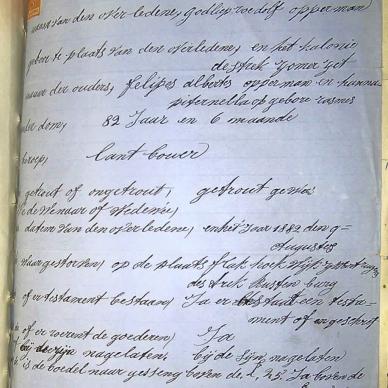 naam van den overledene, godlip roedolf opperman
geboorte plaats van den overledene, en het kolonie
destrek
naame der ouders, felipes alberts opperman en hanna
piternella op gebore rasmes
ouderdom, 82 Jaar en 6 maande
beroep, lant bouwer
getrout of ongetrout, getrout gewes
de Wenaar of Wedewee,
datem van den overledene, en het Jaar 1882 den 9-
Augustes
Waar gestorven, op de plaats flak hoek Wijk
destrek Rusten burg
of er testament bestaan, Ja er bestaat een testa-
ment of en geschrif
of er roerent de goederen Ja
bij de zijn nagelaten, bij de sijn nagelaten
is de boedel naar gesteng boven de